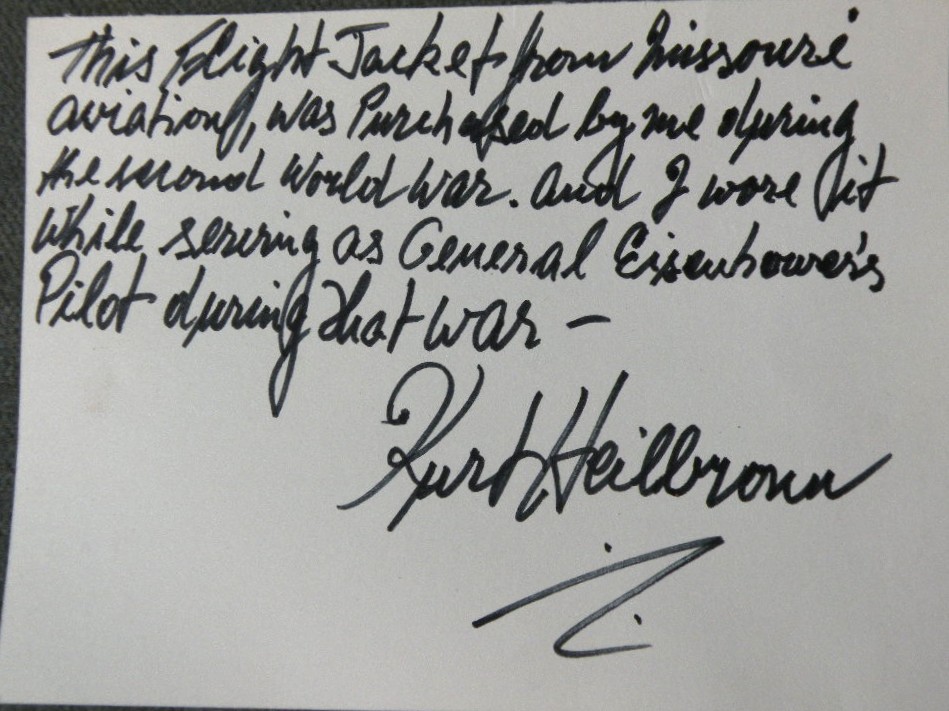 This Flight Jacket from Missouri
aviation, was Purchased by me during
the second World War. and I wore it
while serving as General Eisenhower's
Pilot during that war –
Kurt Heilbronn